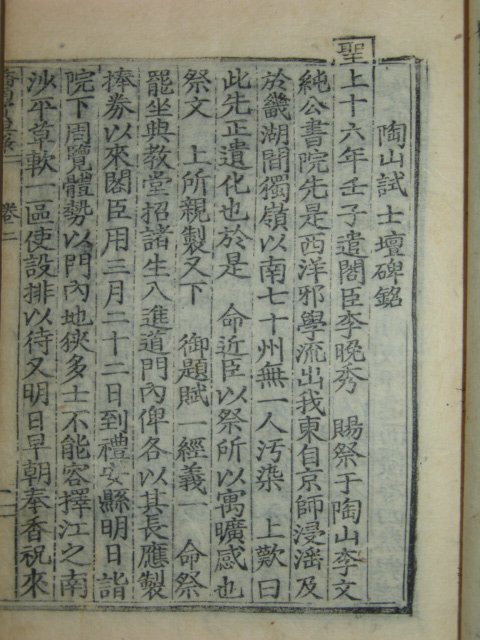 陶山試士壇碑銘
聖上十六年壬子遣閣臣李晩秀 賜祭于陶山李文
純公書院先是西洋邪學流出我東自京師浸淫及
於畿湖間獨嶺以南七十州無一人汚染 上歎曰
此先正遺化也於是 命近臣以祭所以寓曠感也
祭文 上所親製又下 御題賦一經義一 命祭
罷坐典教堂招諸生入進道門內俾各以其長應製
捧券以來閣臣用三月二十二日到禮安縣明日詣
院下周覽體勢以門內地狹多士不能容擇江之南
沙平草軟一區使設排以待又明日早朝奉香祝來
卷二